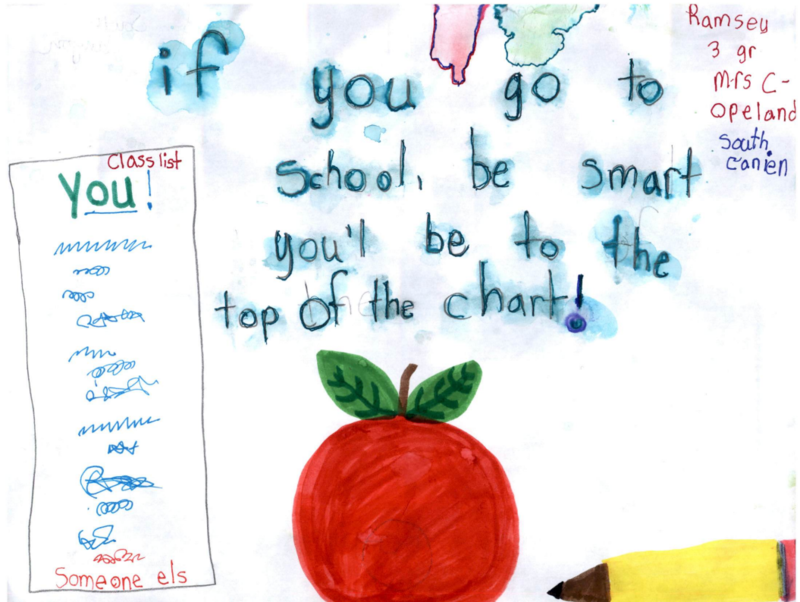 if you go to
school, be smart
you'l be to the
top of the chart!
Ramsey
3 gr
Mrs C-
opeland
South
canien
Class list
You!
Someone els